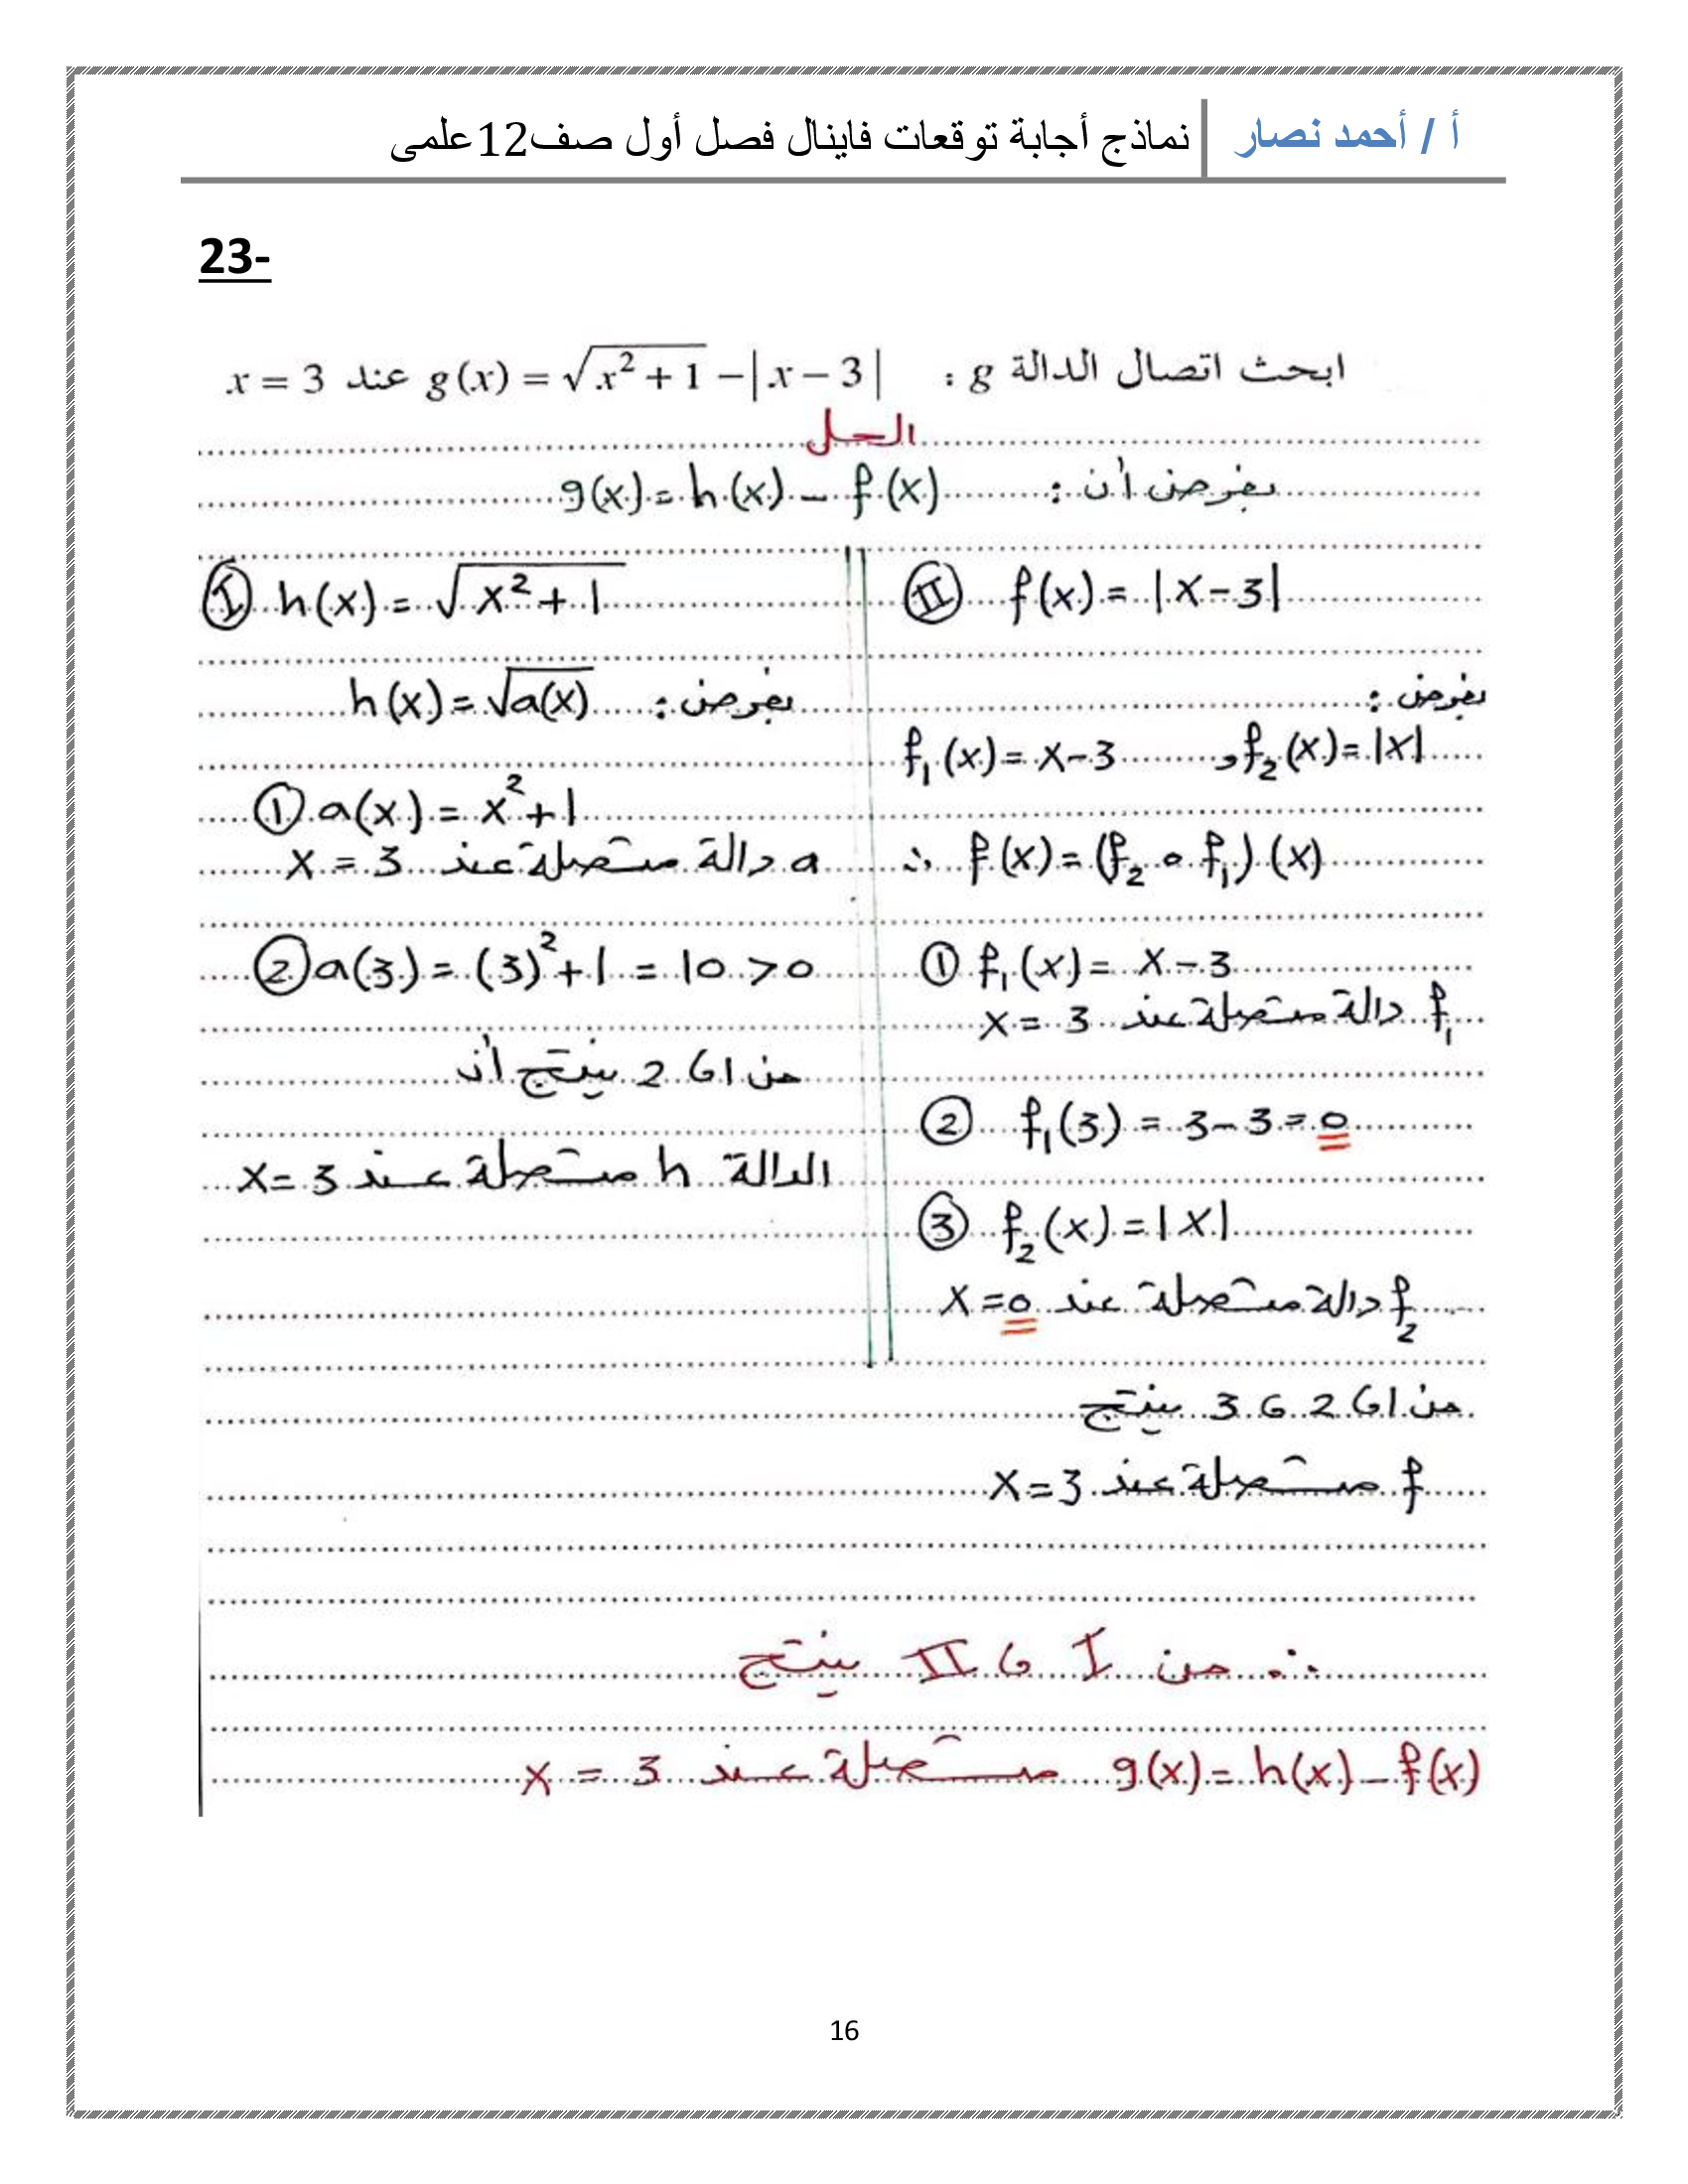 أ / أحمد نصار نماذج أجابة توقعات فاينال فصل أول صف12علمى
23-
ابحث اتصال الدالة g : g(x) = √(x² + 1) − | x − 3 | عند x = 3
الحل
بفرض أن : g(x) = h(x) − f(x)
Ⓘ h(x) = √(x² + 1)
بفرض : h(x) = √a(x)
① a(x) = x² + 1
a دالة متصلة عند x = 3
② a(3) = (3)² + 1 = 10 > 0
من 1 6 2 ينتج أن
الدالة h متصلة عند x = 3
Ⅱ f(x) = |x − 3|
بفرض :
f₁(x) = x − 3 و f₂(x) = |x|
∴ f(x) = (f₂ ∘ f₁)(x)
① f₁(x) = x − 3
f₁ دالة متصلة عند x = 3
② f₁(3) = 3 − 3 = 0
③ f₂(x) = |x|
f₂ دالة متصلة عند x = 0
من 1 6 2 6 3 ينتج
f متصلة عند x = 3
∴ من I 6 II ينتج
g(x) = h(x) − f(x) متصلة عند x = 3
16